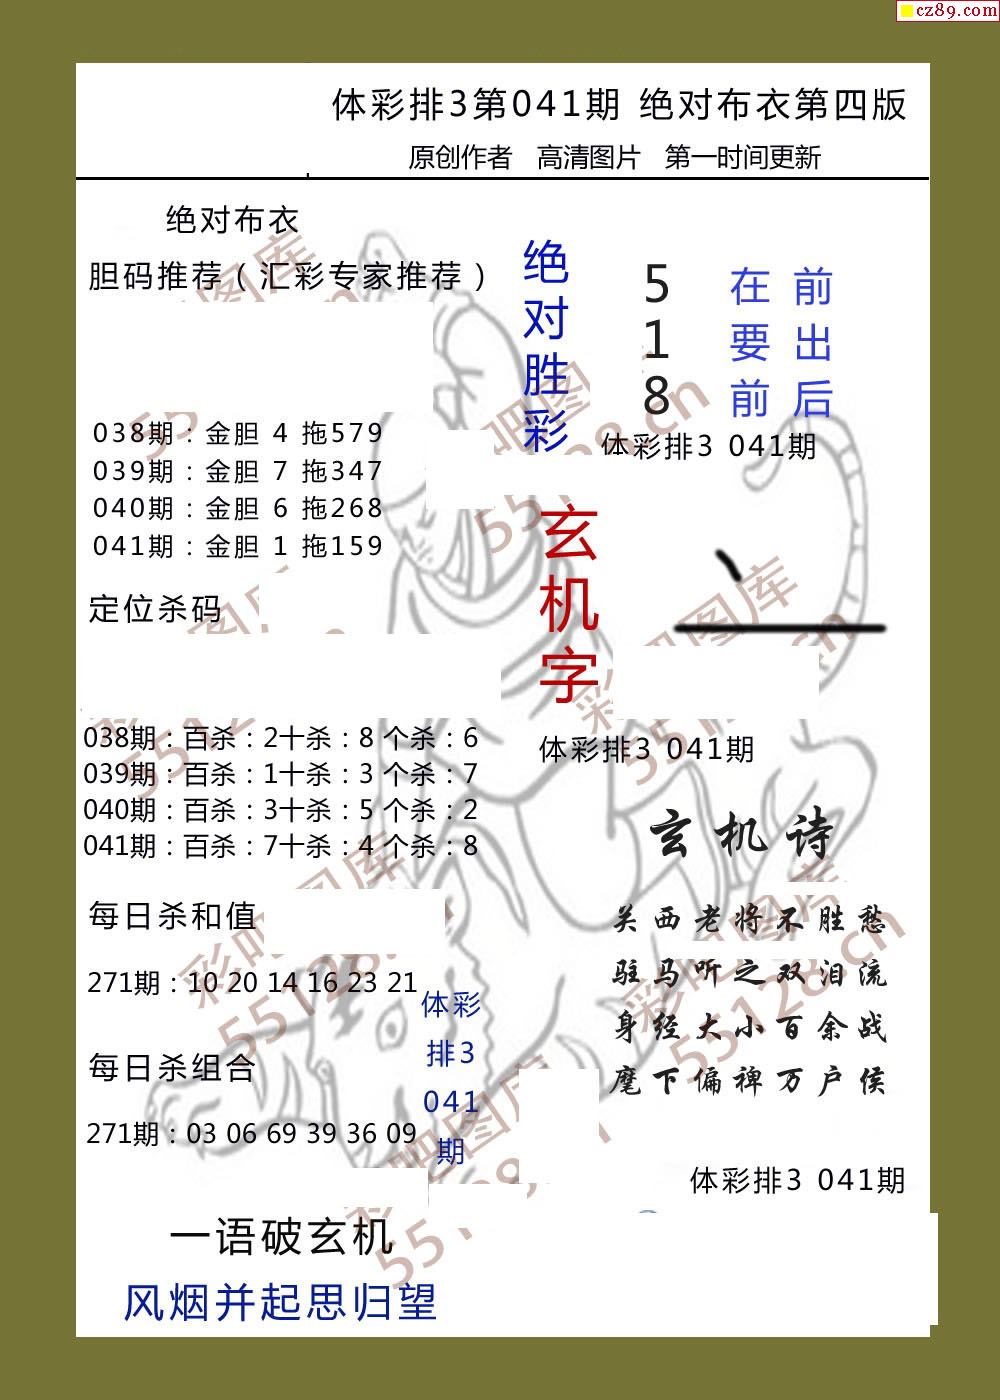 cz89.com
体彩排3第041期 绝对布衣第四版
原创作者 高清图片 第一时间更新
绝对布衣
胆码推荐（汇彩专家推荐）
038期：金胆 4 拖579
039期：金胆 7 拖347
040期：金胆 6 拖268
041期：金胆 1 拖159
定位杀码
038期：百杀：2十杀：8 个杀：6
039期：百杀：1十杀：3 个杀：7
040期：百杀：3十杀：5 个杀：2
041期：百杀：7十杀：4 个杀：8
每日杀和值
271期：10 20 14 16 23 21
每日杀组合
271期：03 06 69 39 36 09
体彩
排3
041
期
一语破玄机
风烟并起思归望
绝对胜彩
5 在 前
1 要 出
8 前 后
体彩排3 041期
玄机字
体彩排3 041期
玄机诗
关西老将不胜愁
驻马听之双泪流
身经大小百余战
麾下偏裨万户侯
体彩排3 041期
彩吧图库
55128.cn